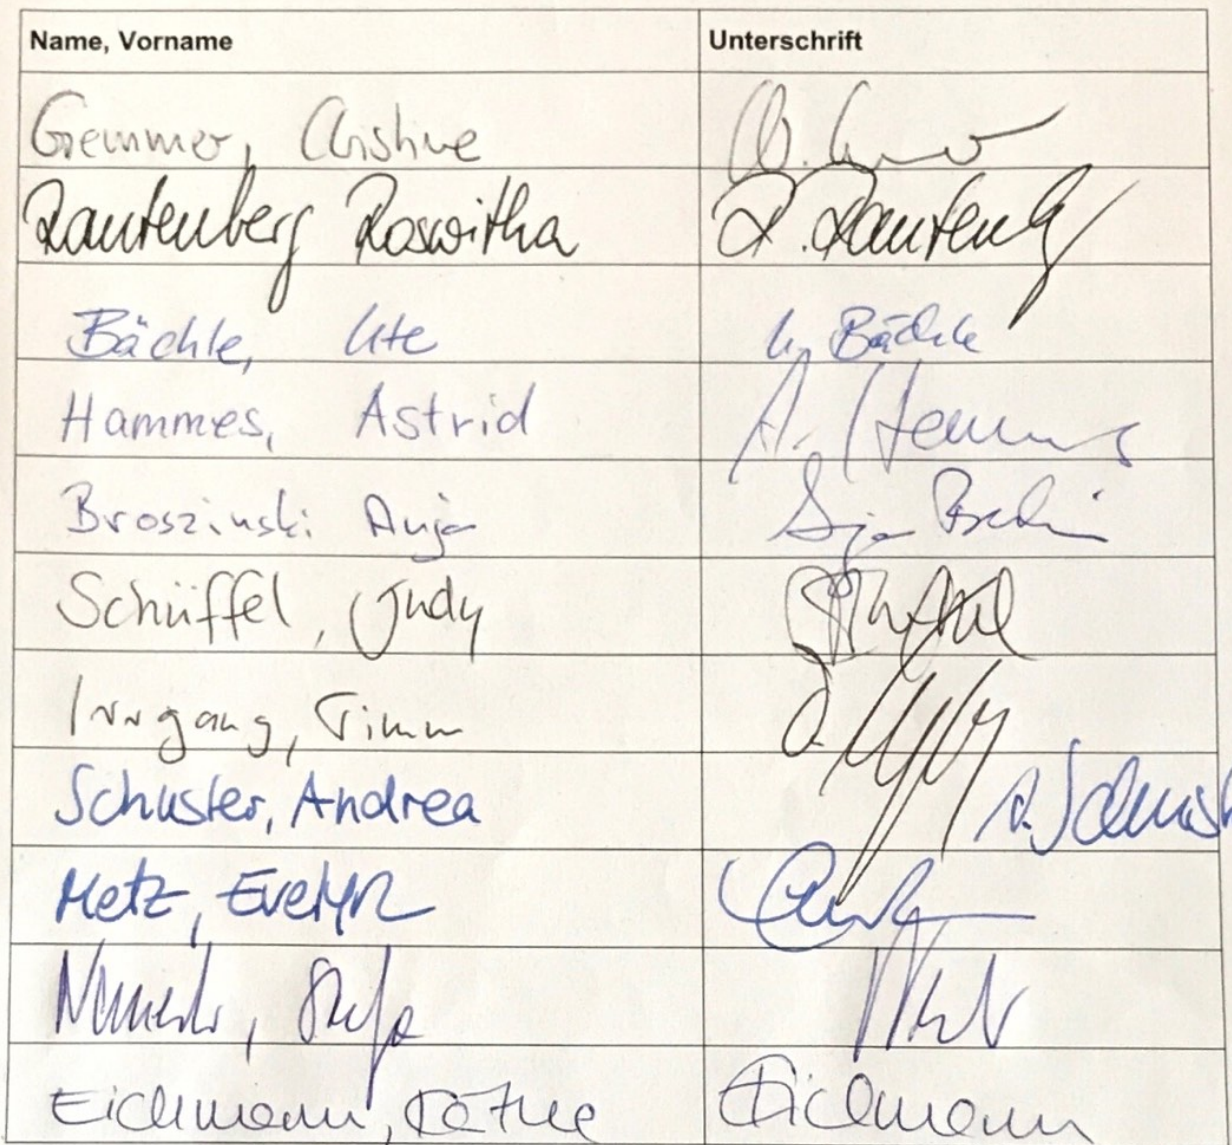 Name, Vorname Unterschrift
Gremmer, Christine
Rautenberg Roswitha R. Rautenb
Bächle, Ute U. Bächle
Hammes, Astrid A. Hammes
Broszinski Anja Anja
Schüffel, Judy
Irrgang, Timm
Schuster, Andrea A. Schust
Metz, Evelyn
Eichmann, Käthe Eichmann